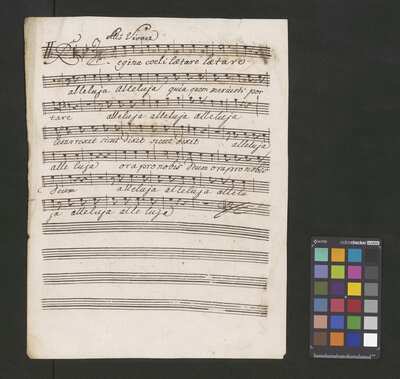 All: Vivace
Regina coeli laetare laetare
alleluja alleluja quia quem meruisti por
tare alleluja alleluja alleluja
resurrexit sicut dixit sicut dixit alleluja
alleluja ora pro nobis Deum ora pro nobis
Deum alleluja alleluja allelu
ja alleluja alleluja